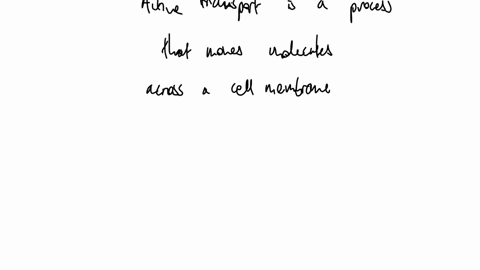 Active transport is a process
that moves molecules
across a cell membrane